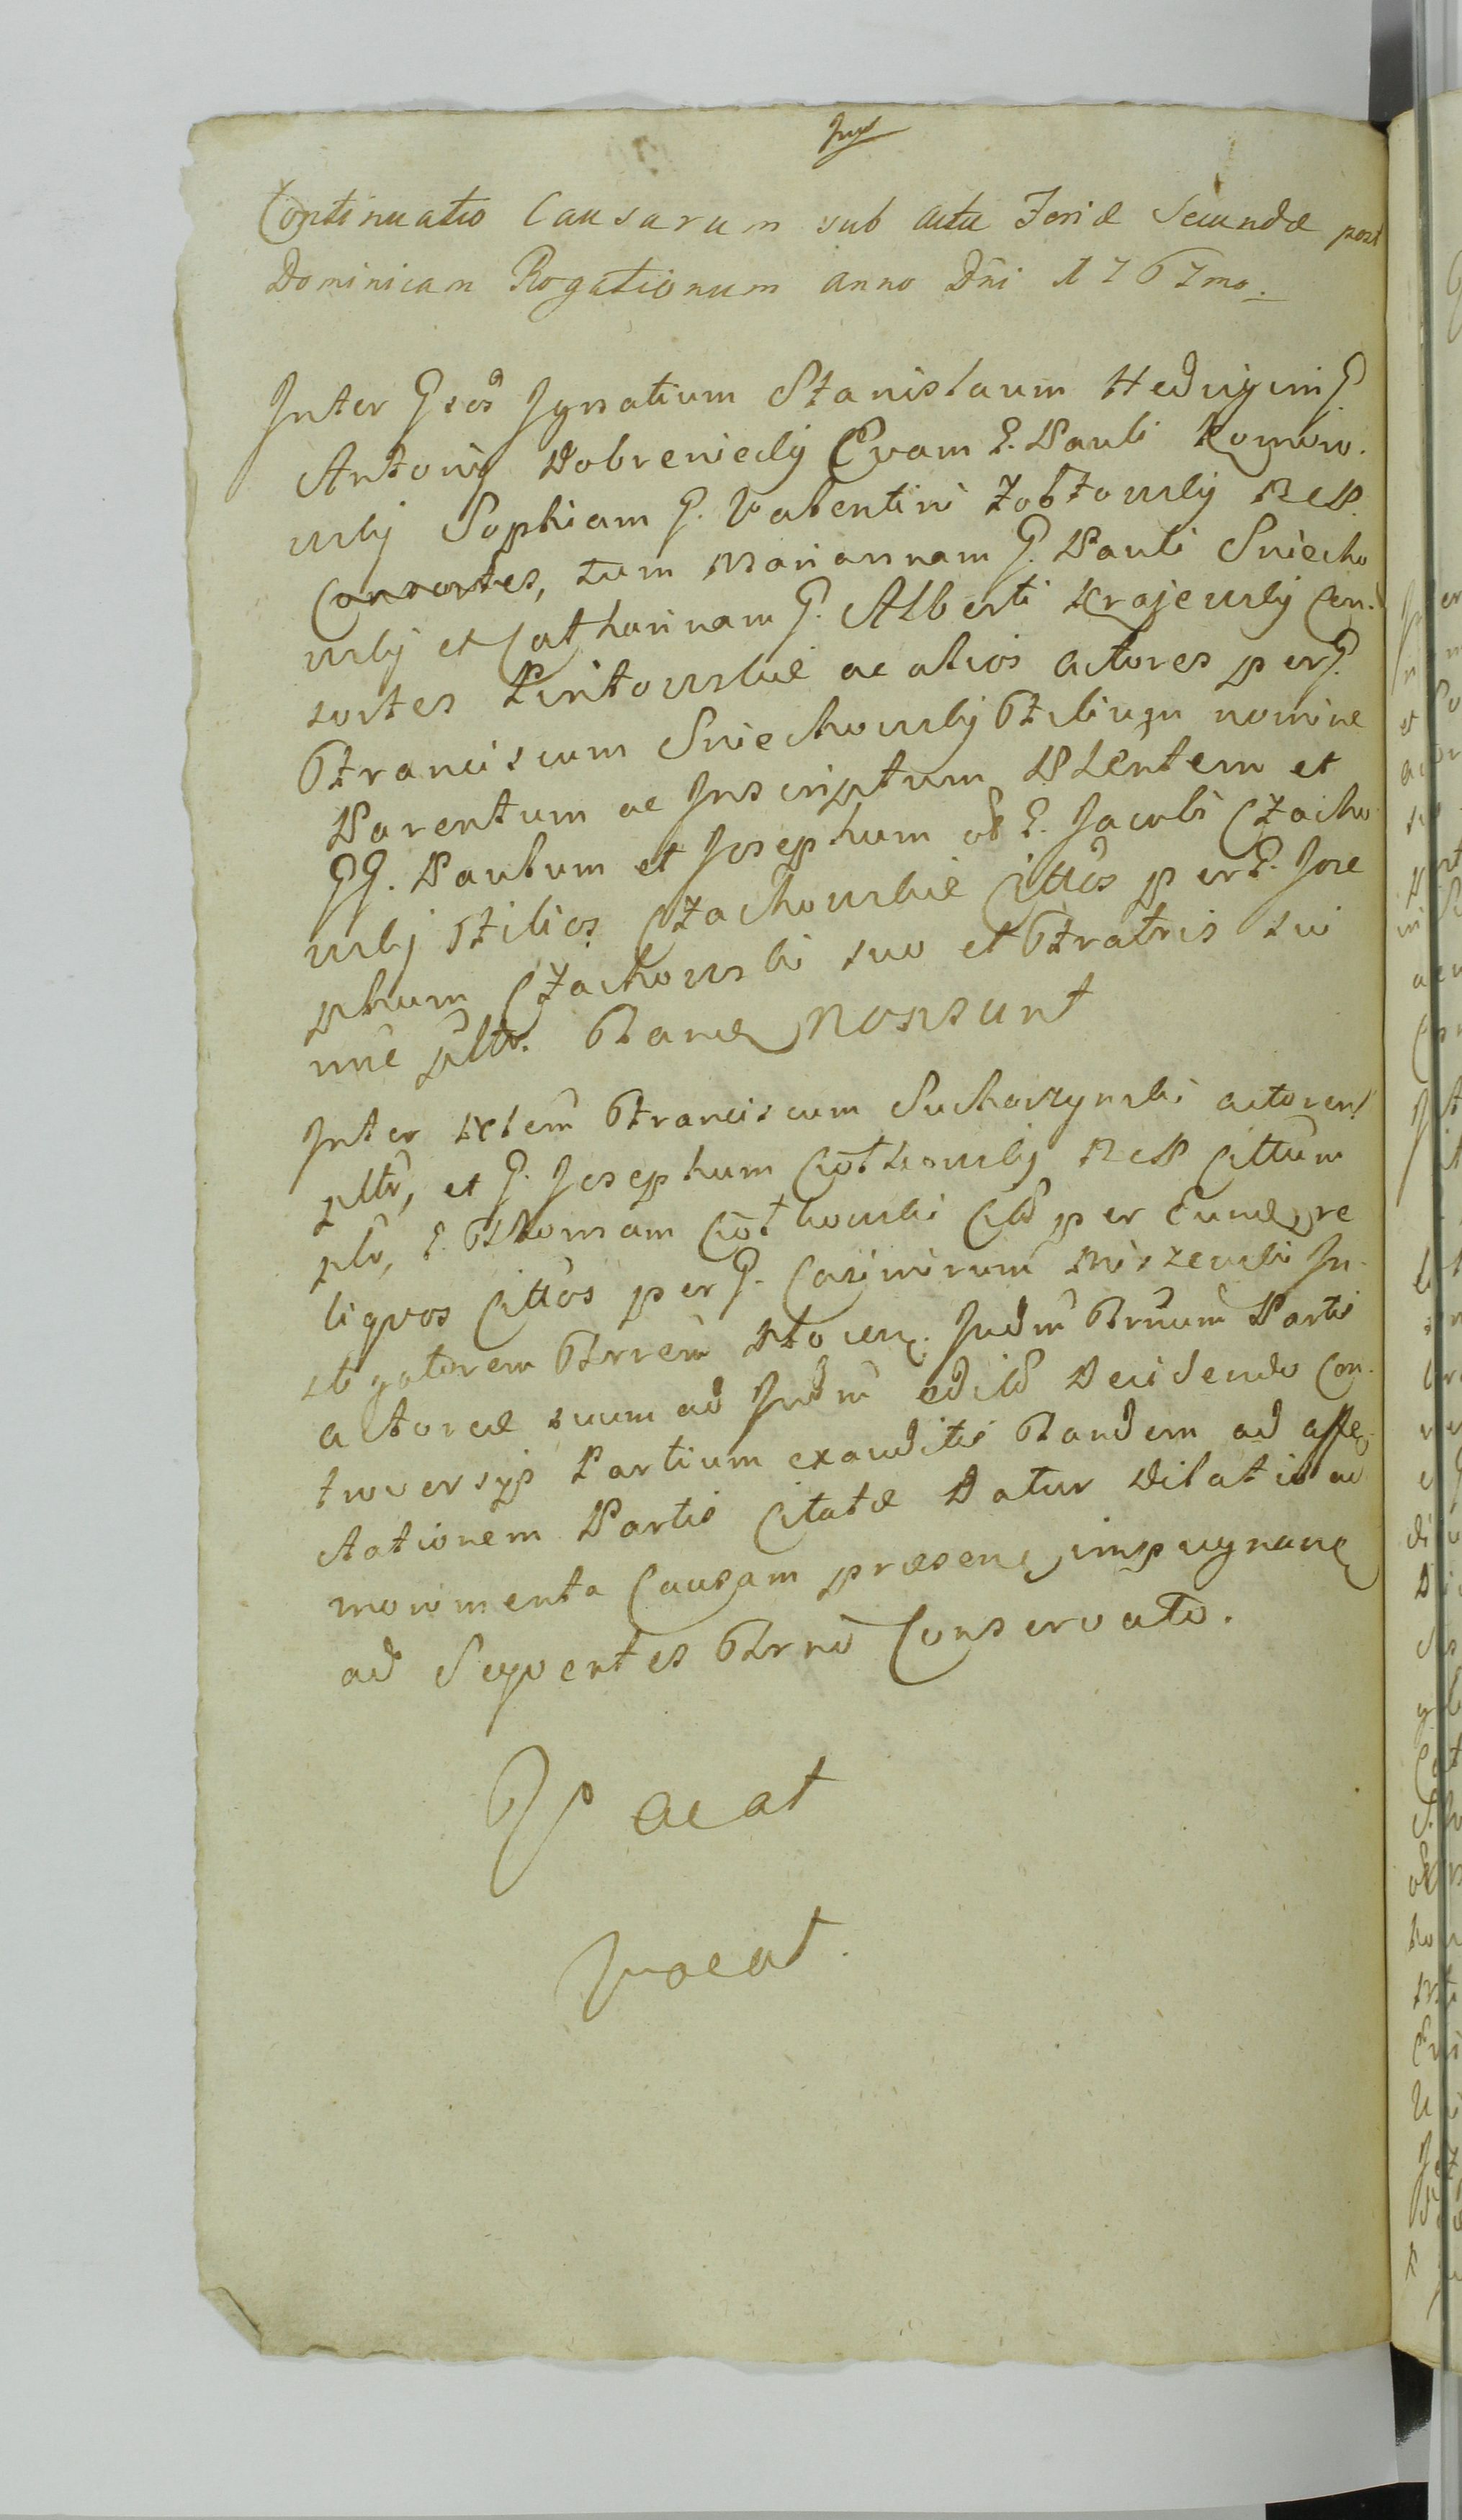 Continuatio Causarum sub actu Feriæ Secundæ post
Dominicam Rogationum anno Dni 1767mo.
Inter Gsos Ignatium Stanislaum Hedvigim G.
Antonij Dobreniecky Evam G. Pauli Komoro-
wsky Sophiam G. Valentini Zobzowsky Resp.
Consortes, tum Mariannam G. Pauli Sniecho
wsky et Catharinam G. Alberti Krajewsky Con-
sortes Pintowskie ac alios actores per G.
Franciscum Sniechowsky Filium nomine
Parentum ac Inscriptum Plentem et
GG. Paulum et Josephum olim G. Jacobi Czacho
wsky Filios Czachowskie Cittos per G. Jose
phum Czachowski suo et Fratris sui
nne pltr. Tanq Non sunt
Inter Franciscum Suchorzynski actorem
pltr, et G. Josephum Ciotkowsky Resp Cittum
pltr, G. Thomam Ciotkowski per Eund re
liquos Cittos per G. Casimirum Miszewski In-
stigatorem Trrem Judm Trnum Partis
actoreæ suum ad Judm Decidendo Con-
troversijs Partium exauditis Tandem ad affe-
ctationem Partis Citatæ Datur Dilatio ad
monimenta Causam præsen impugnan
ad Seqventes Trno Conservato.
Vacat
Vacat.